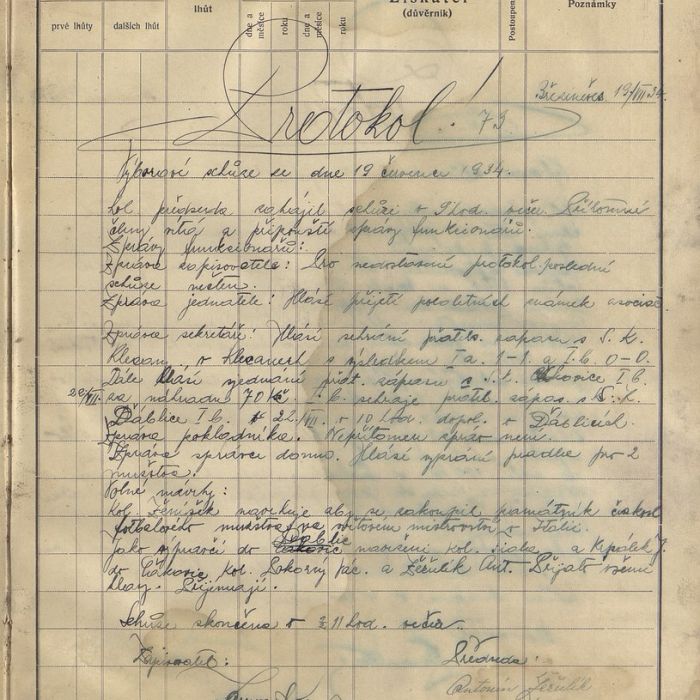 prvé lhůty
dalších lhůt
lhůt
dne a měsíce
roku
dne a měsíce
roku
Získatel
(důvěrník)
Postoupen
Poznámky
Březiněves 19/VII 34.
Protokol! 79
Výborové schůze se dne 19 července 1934.
kol. předseda zahájil schůzi v 9 hod. večer. Přítomné
členy vítá a připouští zprávy funkcionářů.
Zprávy funkcionářů:
Zpráva zapisovatele: Pro nedostavení protokol poslední
schůze nečten.
Zpráva jednatele: Hlásí přijetí pololetních známek asociac
Zpráva sekretáře: Hlásí sehrání přátels. zápasu s S. K.
Klecany v Klecanech s výsledkem I a. 1-1. a I. b. 0-0.
Dále hlásí sjednání přát. zápasu s S. k. I b.
22/VII. za náhradu 70 Kč. I. b. sehraje přátel. zápas s S. K.
Ďáblice I b. 22/VII. v 10 hod. dopol. v Ďáblicích.
Zpráva pokladníka. Nepřítomen zpráv není.
Zpráva správce domu. Hlásí vyprání prádla pro 2
mužstva.
Volné návrhy:
Kol. navrhuje aby se zakoupil památník českosl.
fotbalového mužstva ve světovém mistrovství v Italii.
Jako výpravčí do Ďáblic navrženi kol. a Krpálek J.
do Čakovic kol. Pokorný Vác. a Ant. Přijato všemi
hlasy. Přijímají.
Schůze skončena v 11 hod. večer.
Zapisovatel: Předseda:
Antonín